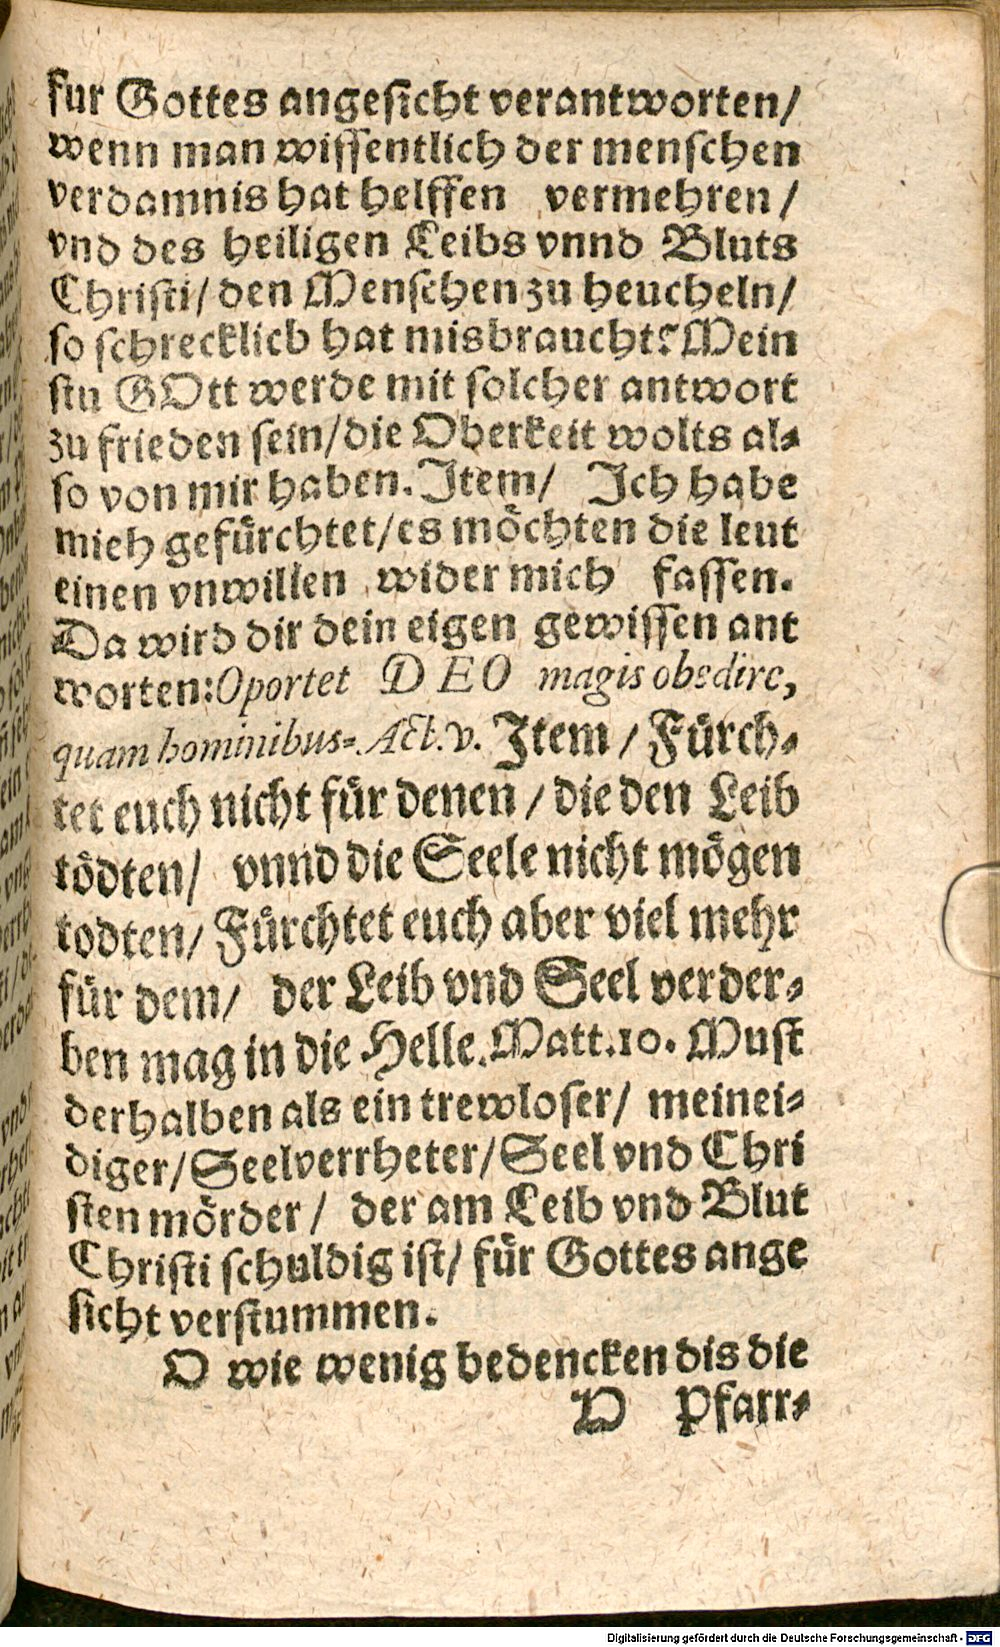 fur Gottes angesicht verantworten/
wenn man wissentlich der menschen
verdamnis hat helffen vermehren/
vnd des heiligen Leibs vnnd Bluts
Christi/ den Menschen zu heucheln/
so schrecklich hat misbraucht? Mein
stu GOtt werde mit solcher antwort
zu frieden sein/die Oberkeit wolts al-
so von mir haben. Item/ Ich habe
mich gefürchtet/es möchten die leut
einen vnwillen wider mich fassen.
Da wird dir dein eigen gewissen ant
worten: Oportet DEO magis obedire,
quam hominibus. Act. v. Item / Fürch-
tet euch nicht für denen / die den Leib
tödten/ vnnd die Seele nicht mögen
todten/ Fürchtet euch aber viel mehr
für dem/ der Leib vnd Seel verder-
ben mag in die Helle. Matt. 10. Must
derhalben als ein trewloser/ meinei-
diger/Seelverrheter/Seel vnd Chri
sten mörder/ der am Leib vnd Blut
Christi schuldig ist/ für Gottes ange
sicht verstummen.
O wie wenig bedencken dis die
D Pfarr-
Digitalisierung gefördert durch die Deutsche Forschungsgemeinschaft - DFG